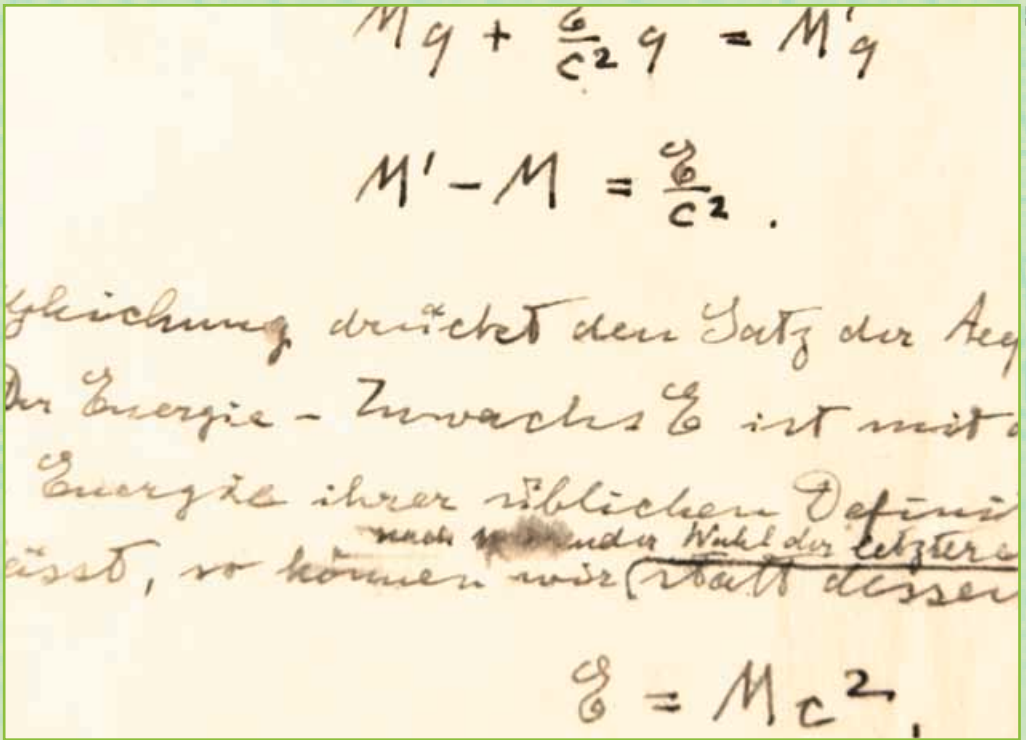 Mq + E/c² q = M'q
M' – M = E/c².
gleichung drückt den Satz der Aeq
Der Energie – Zuwachs E ist mit
Energie ihrer üblichen Definit
nach Wahl der letztere
ässt, so können wir (statt dessen
E = Mc².